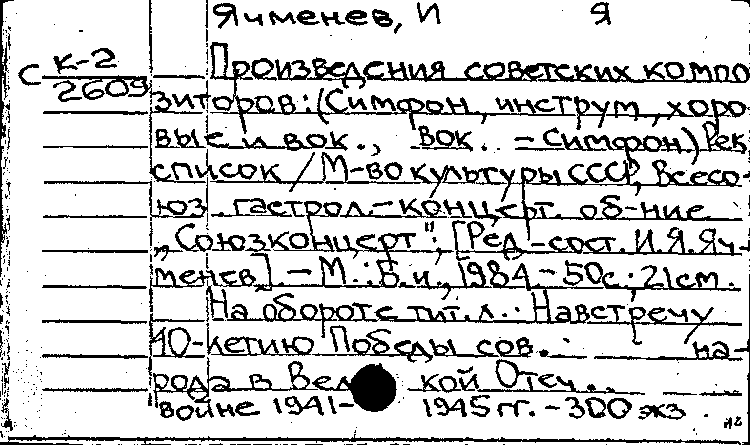 Ячменев, И Я
С К-2
2609
Произведения советских компо
зиторов: (Симфон, инструм, хоро
вые и вок., Вок. - Симфон.) Рек
список / М-во культуры СССР, Всесо-
юз. гастрол.-концерт. об-ние
„Союзконцерт"; [Ред.-сост. И.Я.Яч-
менев]. - М.: Б.и., 1984. - 50с.; 21см.
На обороте тит.л.: Навстречу
40-летию Победы сов. на-
рода в Вел кой Отеч..
войне 1941- 1945 гг. - 300 экз